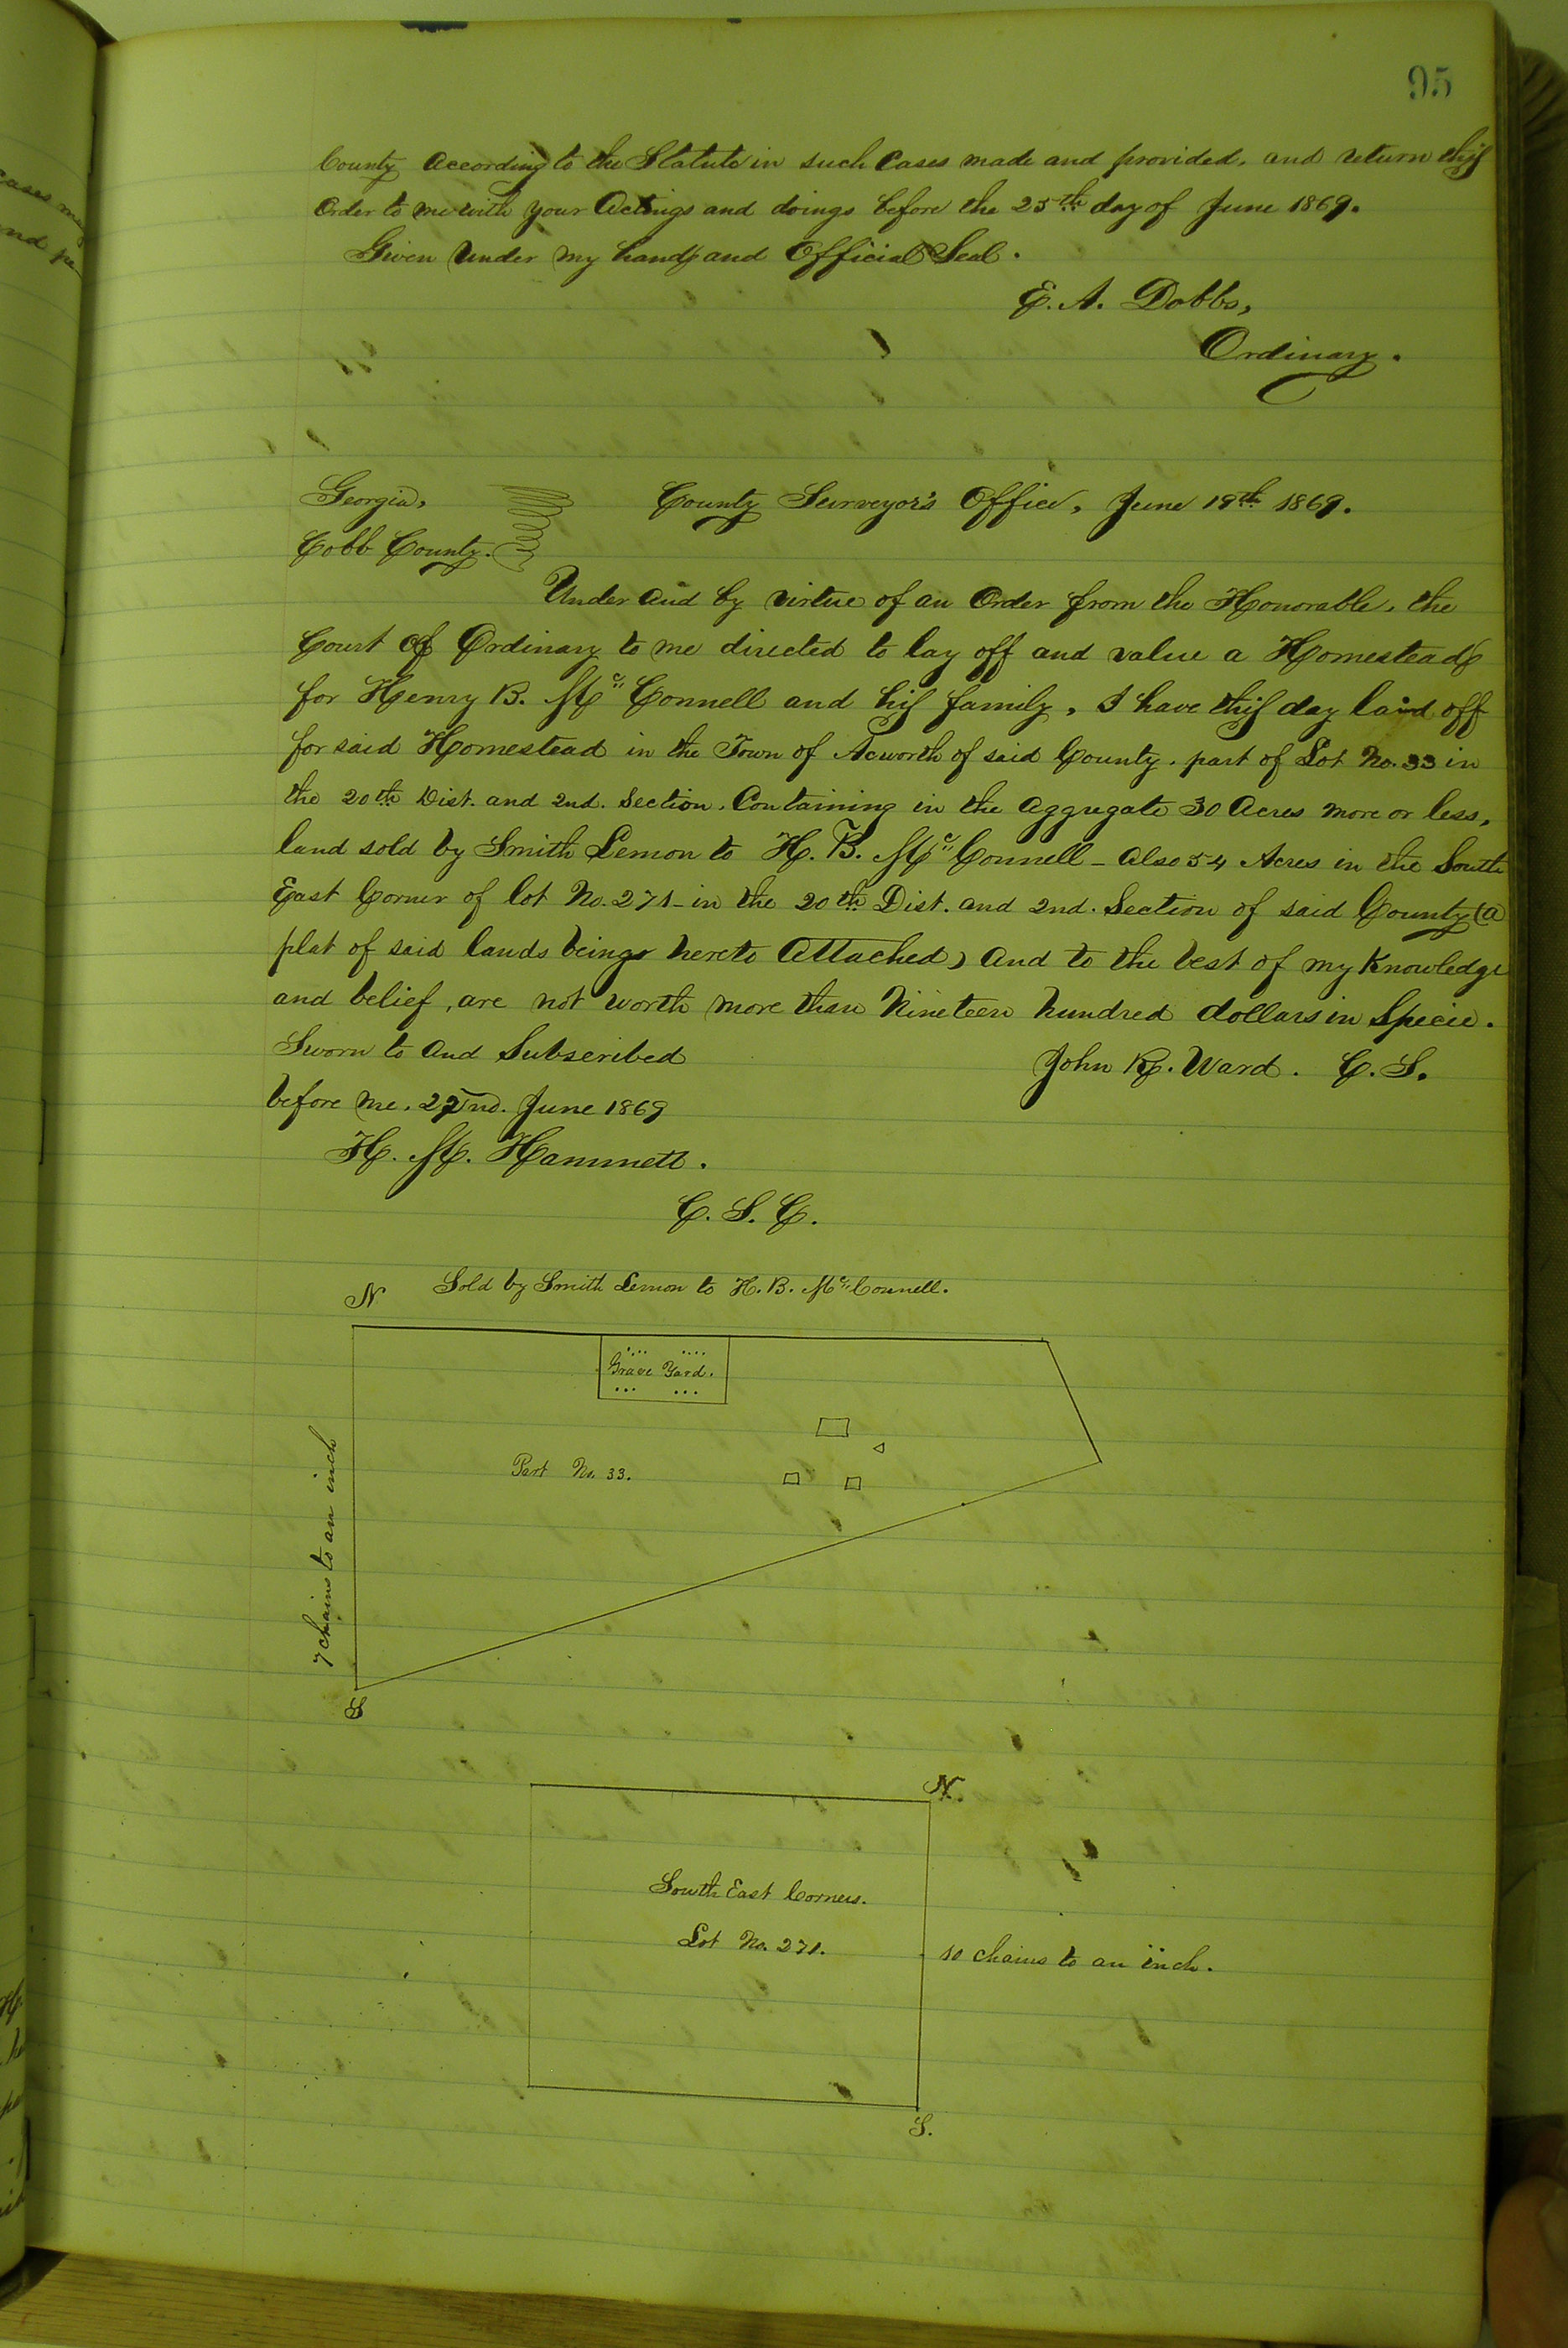 95
County According to the Statute in such Cases made and provided, and return this
Order to me with your Actings and doings before the 25th day of June 1869.
Given Under my hand and Official Seal.
E. A. Dobbs,
Ordinary.
Georgia,
Cobb County.
County Surveyor's Office, June 19th 1869.
Under and by virtue of an Order from the Honorable, the
Court of Ordinary to me directed to lay off and value a Homestead
for Henry B. McConnell and his family, I have this day laid off
for said Homestead in the Town of Acworth of said County, part of Lot No. 33 in
the 20th Dist. and 2nd. Section, Containing in the Aggregate 30 Acres more or less,
land sold by Smith Lemon to H. B. McConnell - Also 54 Acres in the South
East Corner of lot No. 271 - in the 20th Dist. and 2nd. Section of said County (a
plat of said lands being hereto Attached) And to the best of my Knowledge
and belief, are not worth more than Nineteen hundred dollars in Specie.
Sworn to and Subscribed
before me, 22nd. June 1869
John R. Ward. C. S.
H. M. Hammett.
C. S. C.
N
Sold by Smith Lemon to H. B. McConnell.
Grave Yard.
Part No. 33.
7 chains to an inch
S
N.
South East Corner.
Lot No. 271.
10 chains to an inch.
S.